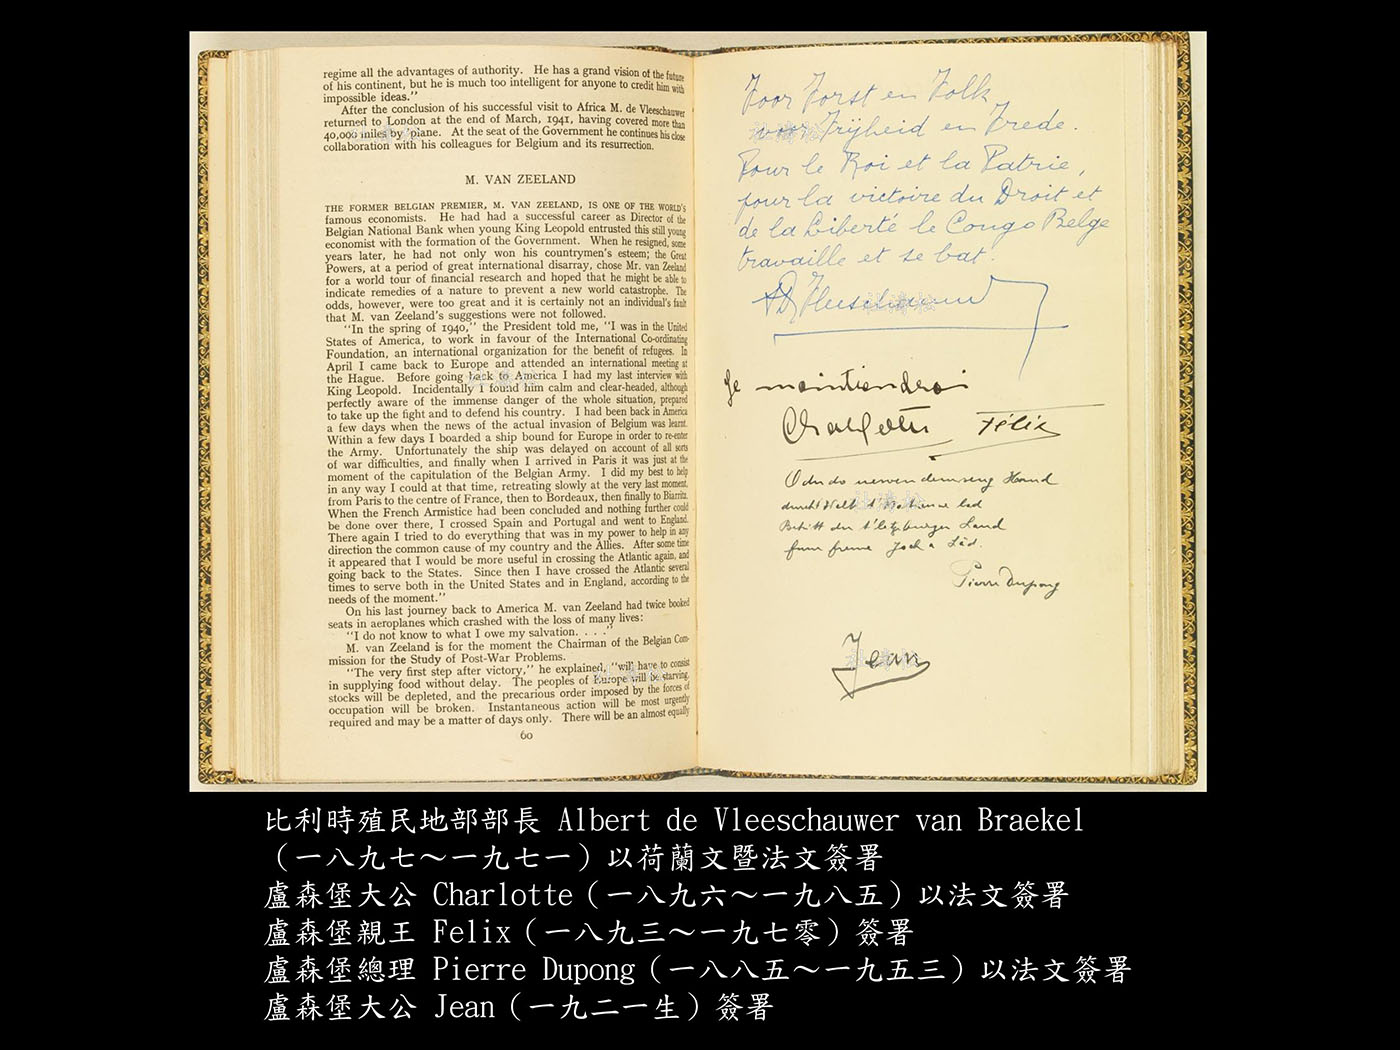 regime all the advantages of authority. He has a grand vision of the future
of his continent, but he is much too intelligent for anyone to credit him with
impossible ideas."
After the conclusion of his successful visit to Africa M. de Vleeschauwer
returned to London at the end of March, 1941, having covered more than
40,000 miles by plane. At the seat of the Government he continues his close
collaboration with his colleagues for Belgium and its resurrection.
M. VAN ZEELAND
THE FORMER BELGIAN PREMIER, M. VAN ZEELAND, IS ONE OF THE WORLD'S
famous economists. He had had a successful career as Director of the
Belgian National Bank when young King Leopold entrusted this still young
economist with the formation of the Government. When he resigned, some
years later, he had not only won his countrymen's esteem; the Great
Powers, at a period of great international disarray, chose Mr. van Zeeland
for a world tour of financial research and hoped that he might be able to
indicate remedies of a nature to prevent a new world catastrophe. The
odds, however, were too great and it is certainly not an individual's fault
that M. van Zeeland's suggestions were not followed.
"In the spring of 1940," the President told me, "I was in the United
States of America, to work in favour of the International Co-ordinating
Foundation, an international organization for the benefit of refugees. In
April I came back to Europe and attended an international meeting at
the Hague. Before going back to America I had my last interview with
King Leopold. Incidentally I found him calm and clear-headed, although
perfectly aware of the immense danger of the whole situation, prepared
to take up the fight and to defend his country. I had been back in America
a few days when the news of the actual invasion of Belgium was learnt.
Within a few days I boarded a ship bound for Europe in order to re-enter
the Army. Unfortunately the ship was delayed on account of all sorts
of war difficulties, and finally when I arrived in Paris it was just at the
moment of the capitulation of the Belgian Army. I did my best to help
in any way I could at that time, retreating slowly at the very last moment,
from Paris to the centre of France, then to Bordeaux, then finally to Biarritz.
When the French Armistice had been concluded and nothing further could
be done over there, I crossed Spain and Portugal and went to England.
There again I tried to do everything that was in my power to help in any
direction the common cause of my country and the Allies. After some time
it appeared that I would be more useful in crossing the Atlantic again, and
going back to the States. Since then I have crossed the Atlantic several
times to serve both in the United States and in England, according to the
needs of the moment."
On his last journey back to America M. van Zeeland had twice booked
seats in aeroplanes which crashed with the loss of many lives:
"I do not know to what I owe my salvation. . . ."
M. van Zeeland is for the moment the Chairman of the Belgian Com-
mission for the Study of Post-War Problems.
"The very first step after victory," he explained, "will have to consist
in supplying food without delay. The peoples of Europe will be starving,
stocks will be depleted, and the precarious order imposed by the forces of
occupation will be broken. Instantaneous action will be most urgently
required and may be a matter of days only. There will be an almost equally
60
Voor Vorst en Volk
voor Vrijheid en Vrede.
Pour le Roi et la Patrie,
pour la victoire du Droit et
de la Liberté le Congo Belge
travaille et se bat.
Je maintiendrai
Charlotte Félix
Pierre Dupong
Jean
比利時殖民地部部長 Albert de Vleeschauwer van Braekel
（一八九七～一九七一）以荷蘭文暨法文簽署
盧森堡大公 Charlotte（一八九六～一九八五）以法文簽署
盧森堡親王 Felix（一八九三～一九七零）簽署
盧森堡總理 Pierre Dupong（一八八五～一九五三）以法文簽署
盧森堡大公 Jean（一九二一生）簽署